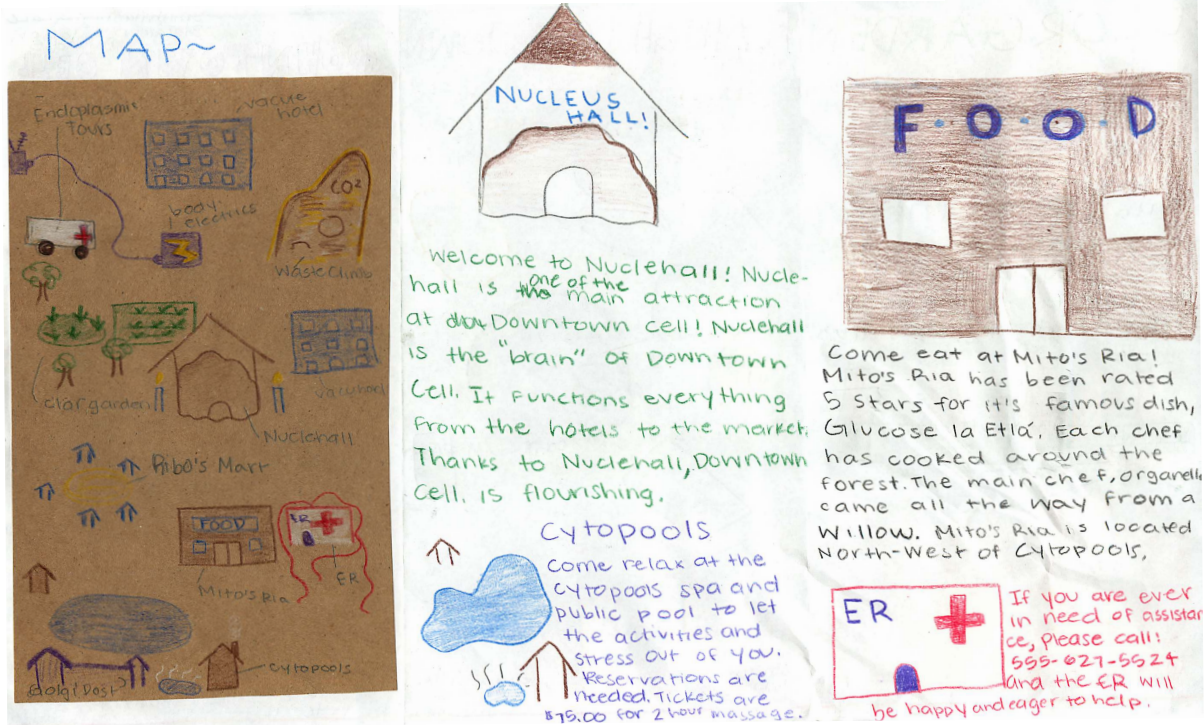 MAP~
Endoplasmic
Tours
vacule
hotel
CO²
body
electrics
Waste Climb
clorgarden
Nuclehall
Ribo's Mart
FOOD
ER
ER
Mito's Ria
cytopools
Golgi Dost
NUCLEUS
HALL!
Welcome to Nuclehall! Nucle-
hall is one of the main attraction
at Downtown cell! Nuclehall
is the "brain" of Downtown
Cell. It functions everything
from the hotels to the market.
Thanks to Nuclehall, Downtown
Cell. is flourishing.
Cytopools
Come relax at the
cytopools spa and
public pool to let
the activities and
stress out of you.
Reservations are
needed. Tickets are
$75.00 for 2 hour massage.
F·O·O·D
Come eat at Mito's Ria!
Mito's Ria has been rated
5 stars for it's famous dish,
Glucose la Etlá. Each chef
has cooked around the
forest. The main chef, organelle
came all the way from a
Willow. Mito's Ria is located
North-West of Cytopools.
ER
If you are ever
in need of assistan
ce, please call:
555-627-5524
and the ER will
be happy and eager to help.